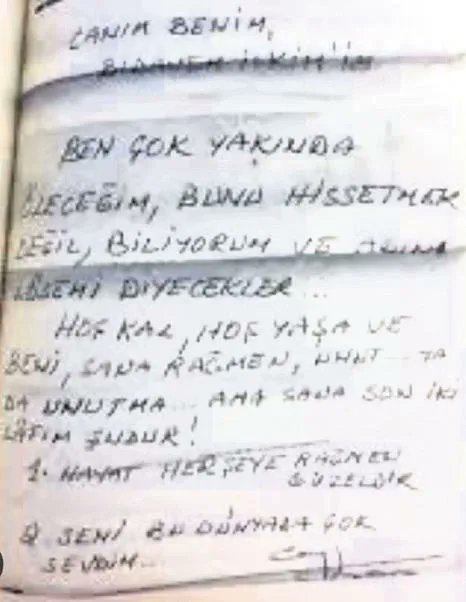 CANIM BENİM,
BİRANEM İLKİM'İM
BEN ÇOK YAKINDA
ÖLECEĞİM, BUNU HİSSETMEK
DEĞİL, BİLİYORUM VE ADINA
DİYECEKLER...
HOŞ KAL, HOŞ YAŞA VE
BENİ, SANA RAĞMEN, UNUT... YA
DA UNUTMA... AMA SANA SON İKİ
LÂFIM ŞUDUR!
1. HAYAT HERŞEYE RAĞMEN
GÜZELDİR
2) SENİ BU DÜNYADA ÇOK
SEVDİM...